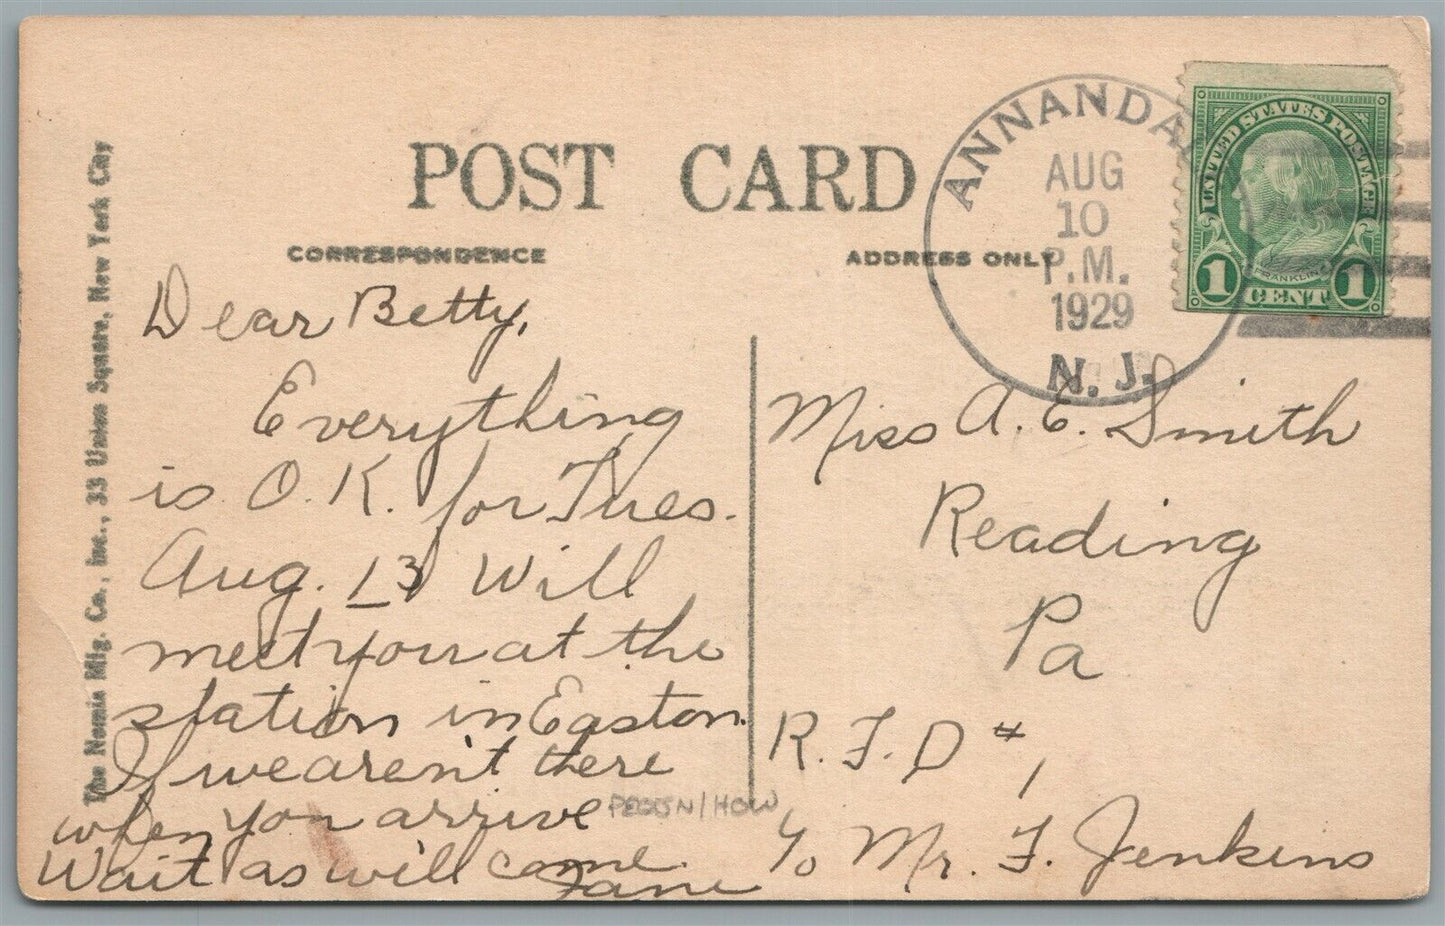 POST CARD
CORRESPONDENCE
ADDRESS ONLY
The Namin Mfg. Co., Inc., 33 Union Square, New York City
ANNANDA
AUG
10
P.M.
1929
N. J.
UNITED STATES POSTAGE
FRANKLIN
1 CENT 1
Dear Betty,
Everything
is O.K. for Tues.
Aug. 13 Will
meet you at the
station in Easton.
If we aren't there
when you arrive
Wait as will come.
Jane
Miss A. E. Smith
Reading
Pa
R. F. D #1
℅ Mr. F. Jenkins